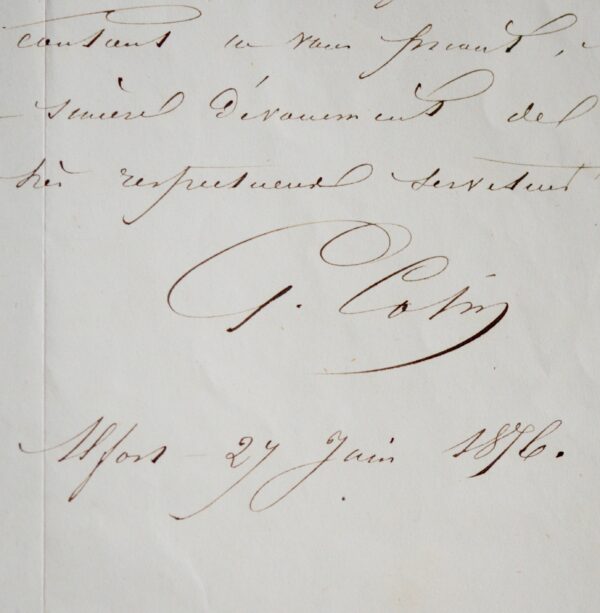 constant en vous priant,
sincère dévouement de
très respectueux serviteur
G. Colin
Alfort - 27 Juin 1876.